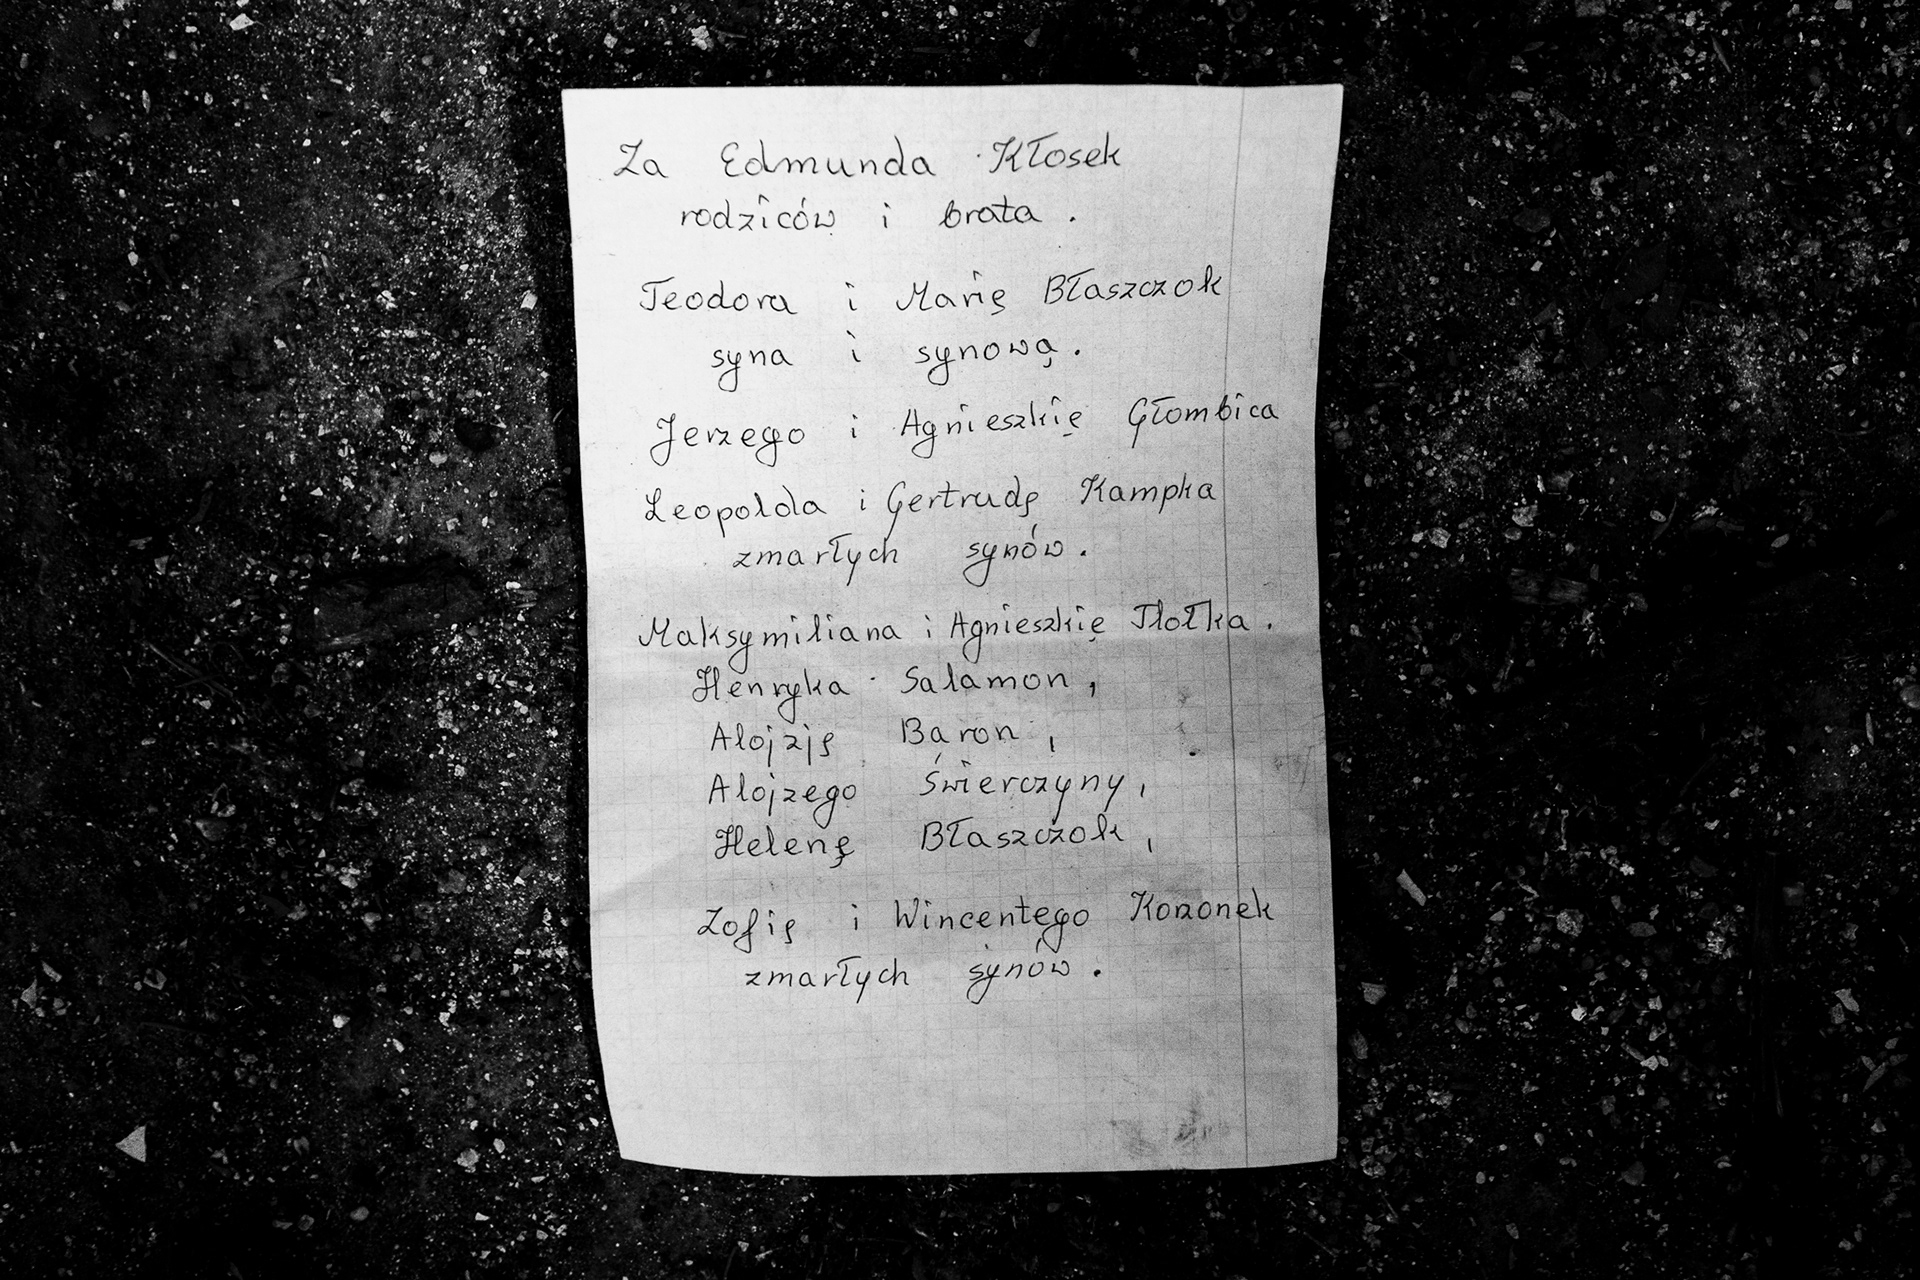 Za Edmunda Kłosek
rodziców i brata.
Teodora i Marię Błaszczok
syna i synową.
Jerzego i Agnieszkię Głombica
Leopolda i Gertrudę Kampka
zmarłych synów.
Maksymiliana i Agnieszkię Tłołka.
Henryka Salamon,
Alojzję Baron,
Alojzego Świerczyny,
Helenę Błaszczok,
Zofię i Wincentego Koronek
zmarłych synów.